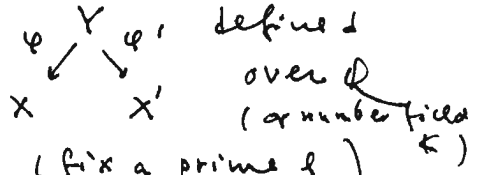 φ Y φ' defined
over Q
X X' (or number field
K)
(fix a prime